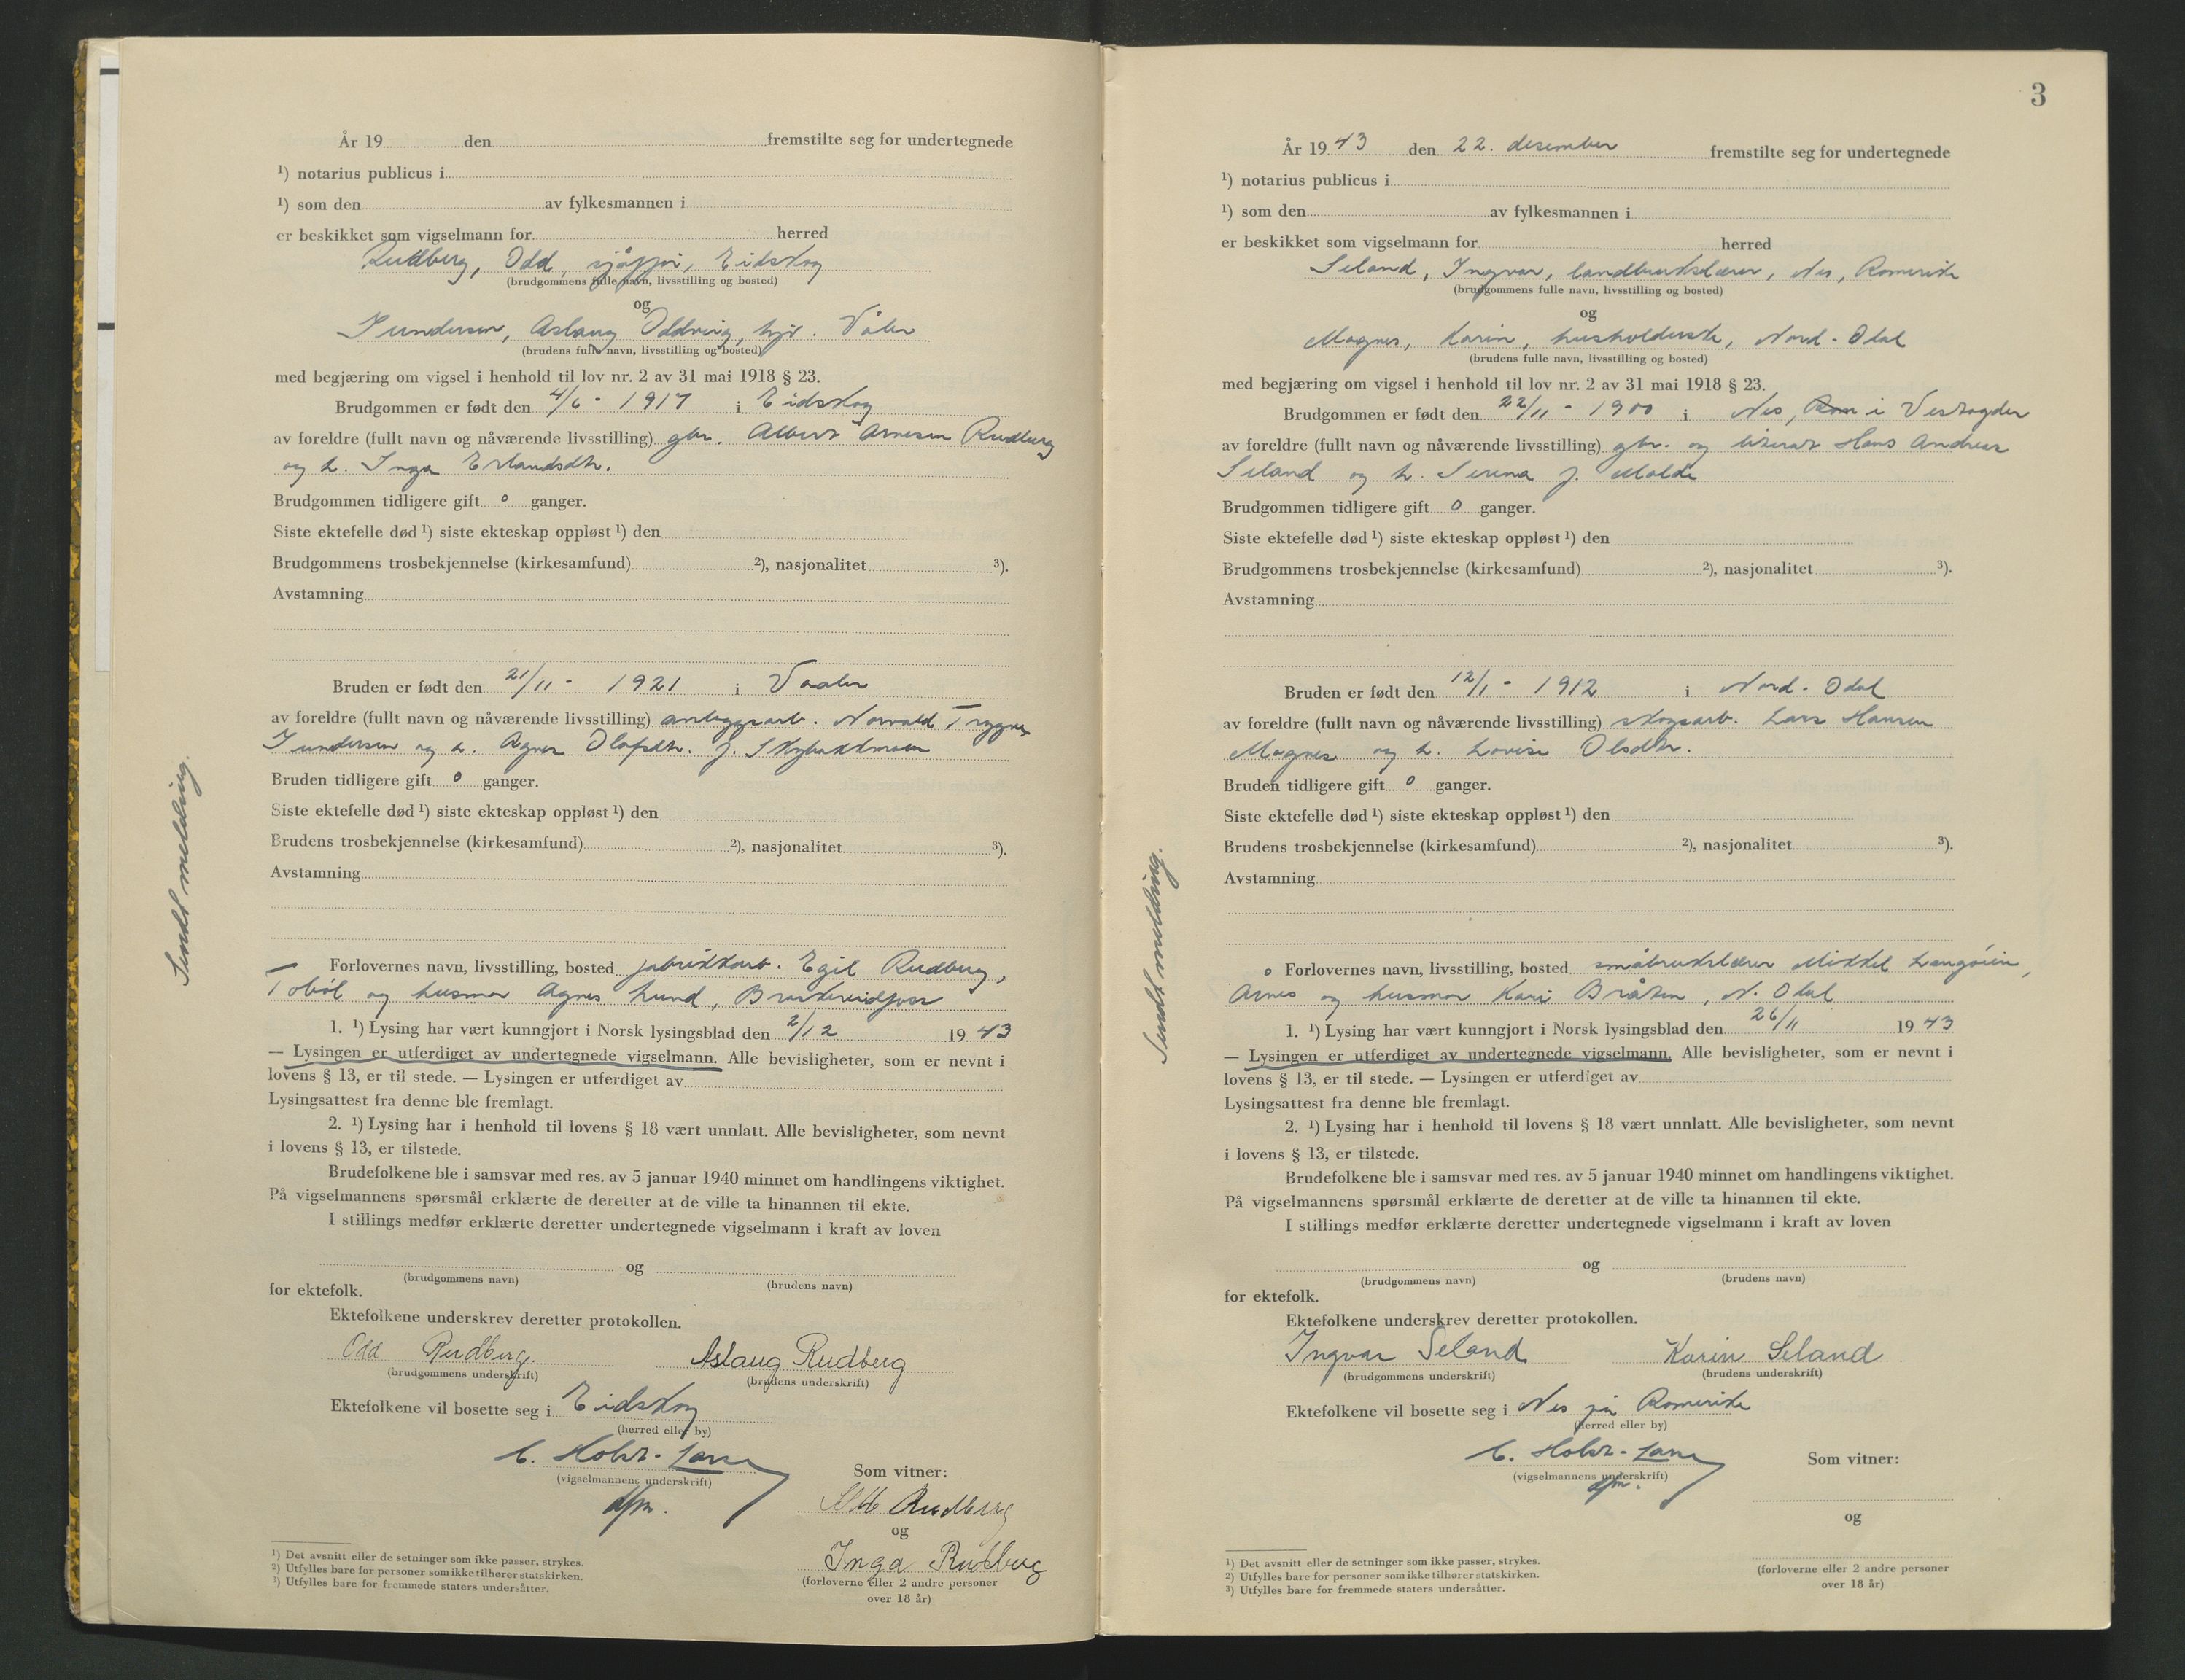 År 19 den fremstilte seg for undertegnede
¹) notarius publicus i
¹) som den av fylkesmannen i
er beskikket som vigselmann for herred
Rudberg, Odd, sjåffør, Eidskog
(brudgommens fulle navn, livsstilling og bosted)
og
Gundersen, Aslaug Oddveig, hjv. Våler
(brudens fulle navn, livsstilling og bosted)
med begjæring om vigsel i henhold til lov nr. 2 av 31 mai 1918 § 23.
Brudgommen er født den 4/6 - 1917 i Eidskog
av foreldre (fullt navn og nåværende livsstilling) gbr. Albert Arnesen Rudberg
og h. Inga Erlandsdtr.
Brudgommen tidligere gift 0 ganger.
Siste ektefelle død ¹) siste ekteskap oppløst ¹) den
Brudgommens trosbekjennelse (kirkesamfund) ²), nasjonalitet ³).
Avstamning
Bruden er født den 21/11 - 1921 i Vaaler
av foreldre (fullt navn og nåværende livsstilling) anleggsarb. Norvald Trygve
Gundersen og h. Agnes Olafsdtr. f.
Bruden tidligere gift 0 ganger.
Siste ektefelle død ¹) siste ekteskap oppløst ¹) den
Brudens trosbekjennelse (kirkesamfund) ²), nasjonalitet ³).
Avstamning
Sendt melding.
Forlovernes navn, livsstilling, bosted fabrikkarb. Egil Rudberg,
Tobøl og husmor Agnes Lund, Bruskereidfoss
1. ¹) Lysing har vært kunngjort i Norsk lysingsblad den 2/12 1943
— Lysingen er utferdiget av undertegnede vigselmann. Alle bevisligheter, som er nevnt i
lovens § 13, er til stede. — Lysingen er utferdiget av
Lysingsattest fra denne ble fremlagt.
2. ¹) Lysing har i henhold til lovens § 18 vært unnlatt. Alle bevisligheter, som nevnt
i lovens § 13, er tilstede.
Brudefolkene ble i samsvar med res. av 5 januar 1940 minnet om handlingens viktighet.
På vigselmannens spørsmål erklærte de deretter at de ville ta hinannen til ekte.
I stillings medfør erklærte deretter undertegnede vigselmann i kraft av loven
og
(brudgommens navn) (brudens navn)
for ektefolk.
Ektefolkene underskrev deretter protokollen.
Odd Rudberg. Aslaug Rudberg
(brudgommens underskrift) (brudens underskrift)
Ektefolkene vil bosette seg i Eidskog
(herred eller by)
C. Holst-Larsen
(vigselmannens underskrift)
dfm.
Som vitner:
Rudberg
og
Inga Rudberg
(forloverne eller 2 andre personer
over 18 år)
¹) Det avsnitt eller de setninger som ikke passer, strykes.
²) Utfylles bare for personer som ikke tilhører statskirken.
³) Utfylles bare for fremmede staters undersåtter.
3
År 1943 den 22. desember fremstilte seg for undertegnede
¹) notarius publicus i
¹) som den av fylkesmannen i
er beskikket som vigselmann for herred
Seland, Ingvar, landbrukslærer, Nes, Romerike
(brudgommens fulle navn, livsstilling og bosted)
og
Magnes, Karin, husholderske, Nord-Odal
(brudens fulle navn, livsstilling og bosted)
med begjæring om vigsel i henhold til lov nr. 2 av 31 mai 1918 § 23.
Brudgommen er født den 22/11 - 1900 i Nes, Rom i Vestagder
av foreldre (fullt navn og nåværende livsstilling) gbr. og literat Hans Andreas
Seland og h. Serina f. Molde
Brudgommen tidligere gift 0 ganger.
Siste ektefelle død ¹) siste ekteskap oppløst ¹) den
Brudgommens trosbekjennelse (kirkesamfund) ²), nasjonalitet ³).
Avstamning
Bruden er født den 12/1 - 1912 i Nord-Odal
av foreldre (fullt navn og nåværende livsstilling) skogsarb. Lars Hansen
Magnes og h. Lovise Olsdtr.
Bruden tidligere gift 0 ganger.
Siste ektefelle død ¹) siste ekteskap oppløst ¹) den
Brudens trosbekjennelse (kirkesamfund) ²), nasjonalitet ³).
Avstamning
Sendt melding.
Forlovernes navn, livsstilling, bosted småbrukslærer Mikkel Langøien,
Årnes og husmor Kari Bråten, N. Odal
1. ¹) Lysing har vært kunngjort i Norsk lysingsblad den 26/11 1943
— Lysingen er utferdiget av undertegnede vigselmann. Alle bevisligheter, som er nevnt i
lovens § 13, er til stede. — Lysingen er utferdiget av
Lysingsattest fra denne ble fremlagt.
2. ¹) Lysing har i henhold til lovens § 18 vært unnlatt. Alle bevisligheter, som nevnt
i lovens § 13, er tilstede.
Brudefolkene ble i samsvar med res. av 5 januar 1940 minnet om handlingens viktighet.
På vigselmannens spørsmål erklærte de deretter at de ville ta hinannen til ekte.
I stillings medfør erklærte deretter undertegnede vigselmann i kraft av loven
og
(brudgommens navn) (brudens navn)
for ektefolk.
Ektefolkene underskrev deretter protokollen.
Ingvar Seland Karin Seland
(brudgommens underskrift) (brudens underskrift)
Ektefolkene vil bosette seg i Nes på Romerike
(herred eller by)
C. Holst-Larsen
(vigselmannens underskrift)
dfm.
Som vitner:
og
(forloverne eller 2 andre personer
over 18 år)
¹) Det avsnitt eller de setninger som ikke passer, strykes.
²) Utfylles bare for personer som ikke tilhører statskirken.
³) Utfylles bare for fremmede staters undersåtter.